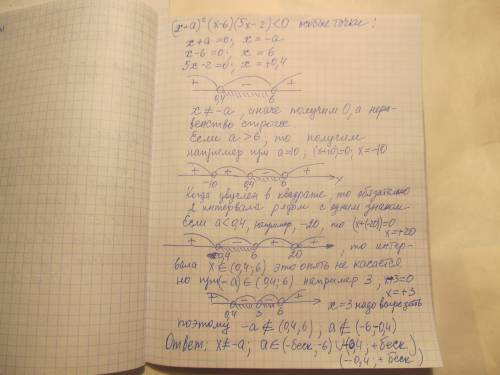 (x+a)²(x-6)(5x-2)<0 особые точки:
x+a=0; x=-a
x-6=0; x=6
5x-2=0; x=+0,4
+ - +
0,4 6
x≠-a, иначе получим 0, а нера-
венство строгое.
Если a>6, то получим
например при a=10, (x+10)=0; x=-10
+ + - + x
-10 0,4 6
Когда двучлен в квадрате, то обязательно
2 интервала рядом с одним знаком.
Если a<0,4, например, -20, то (x+(-20))=0
x=+20
+ - + +
0,4 6 20 , то интер-
вала x∈(0,4;6) это опять не касается
но при (-a)∈(0,4;6) например 3, x-3=0
x=+3
+ - - +
0,4 3 6 x=3 надо вырезать
поэтому -a∉(0,4;6), a∉(-6;-0,4)
Ответ: x≠-a; a∈(-беск,-6)
(-0,4; +беск)